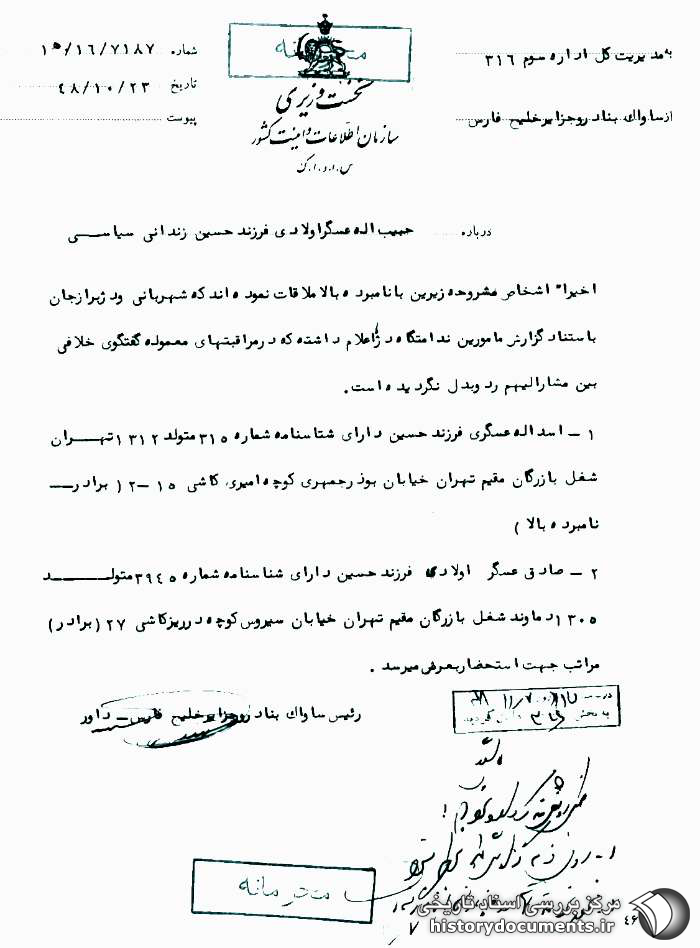 محرمانه
به مدیریت کل اداره سوم ۳۱۶
شماره ۱۵/۱۶/۷۱۸۷
تاریخ ۴۸/۱۰/۲۳
از ساواك بنادر و جزایر خلیج فارس
پیوست
نخست وزیری
سازمان اطلاعات و امنیت کشور
س.ا.و.ا.ک
درباره حبیب اله عسگر اولادی فرزند حسین زندانی سیاسی
اخیراً اشخاص مشروحه زیرین با نامبرده بالا ملاقات نموده اند که شهربانی و دژ برازجان
باستناد گزارش مامورین ندامتگاه دژ اعلام داشته که در مراقبتهای معموله گفتگوی خلافی
بین مشارالیهم رد و بدل نگردیده است.
۱ – اسد اله عسگری فرزند حسین دارای شناسنامه شماره ۳۱۵ متولد ۱۳۱۲ تهران
شغل بازرگان مقیم تهران خیابان بوذرجمهری کوچه امیری کاشی ۱۵ – ۱۲ (برادر
نامبرده بالا)
۲ – صادق عسگر اولادی فرزند حسین دارای شناسنامه شماره ۳۹۴۵ متولد
۱۳۰۵ دماوند شغل بازرگان مقیم تهران خیابان سیروس کوچه در ریز کاشی ۲۷ (برادر)
مراتب جهت استحضار بعرض میرسد.
رئیس ساواك بنادر و جزایر خلیج فارس – داور
محرمانه
۴۶
مرکز بررسی اسناد تاریخی
historydocuments.ir